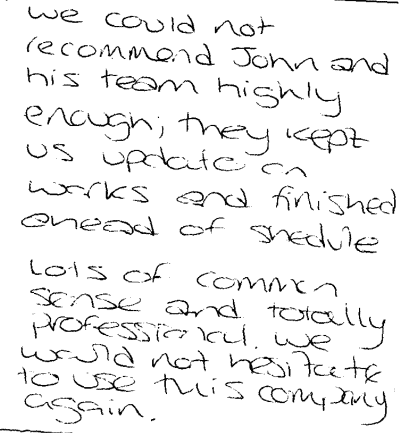 we could not
recommend John and
his team highly
enough; they kept
us update on
works and finished
ahead of shedule
Lots of common
sense and totally
professional. we
would not hesitate
to use this company
again.